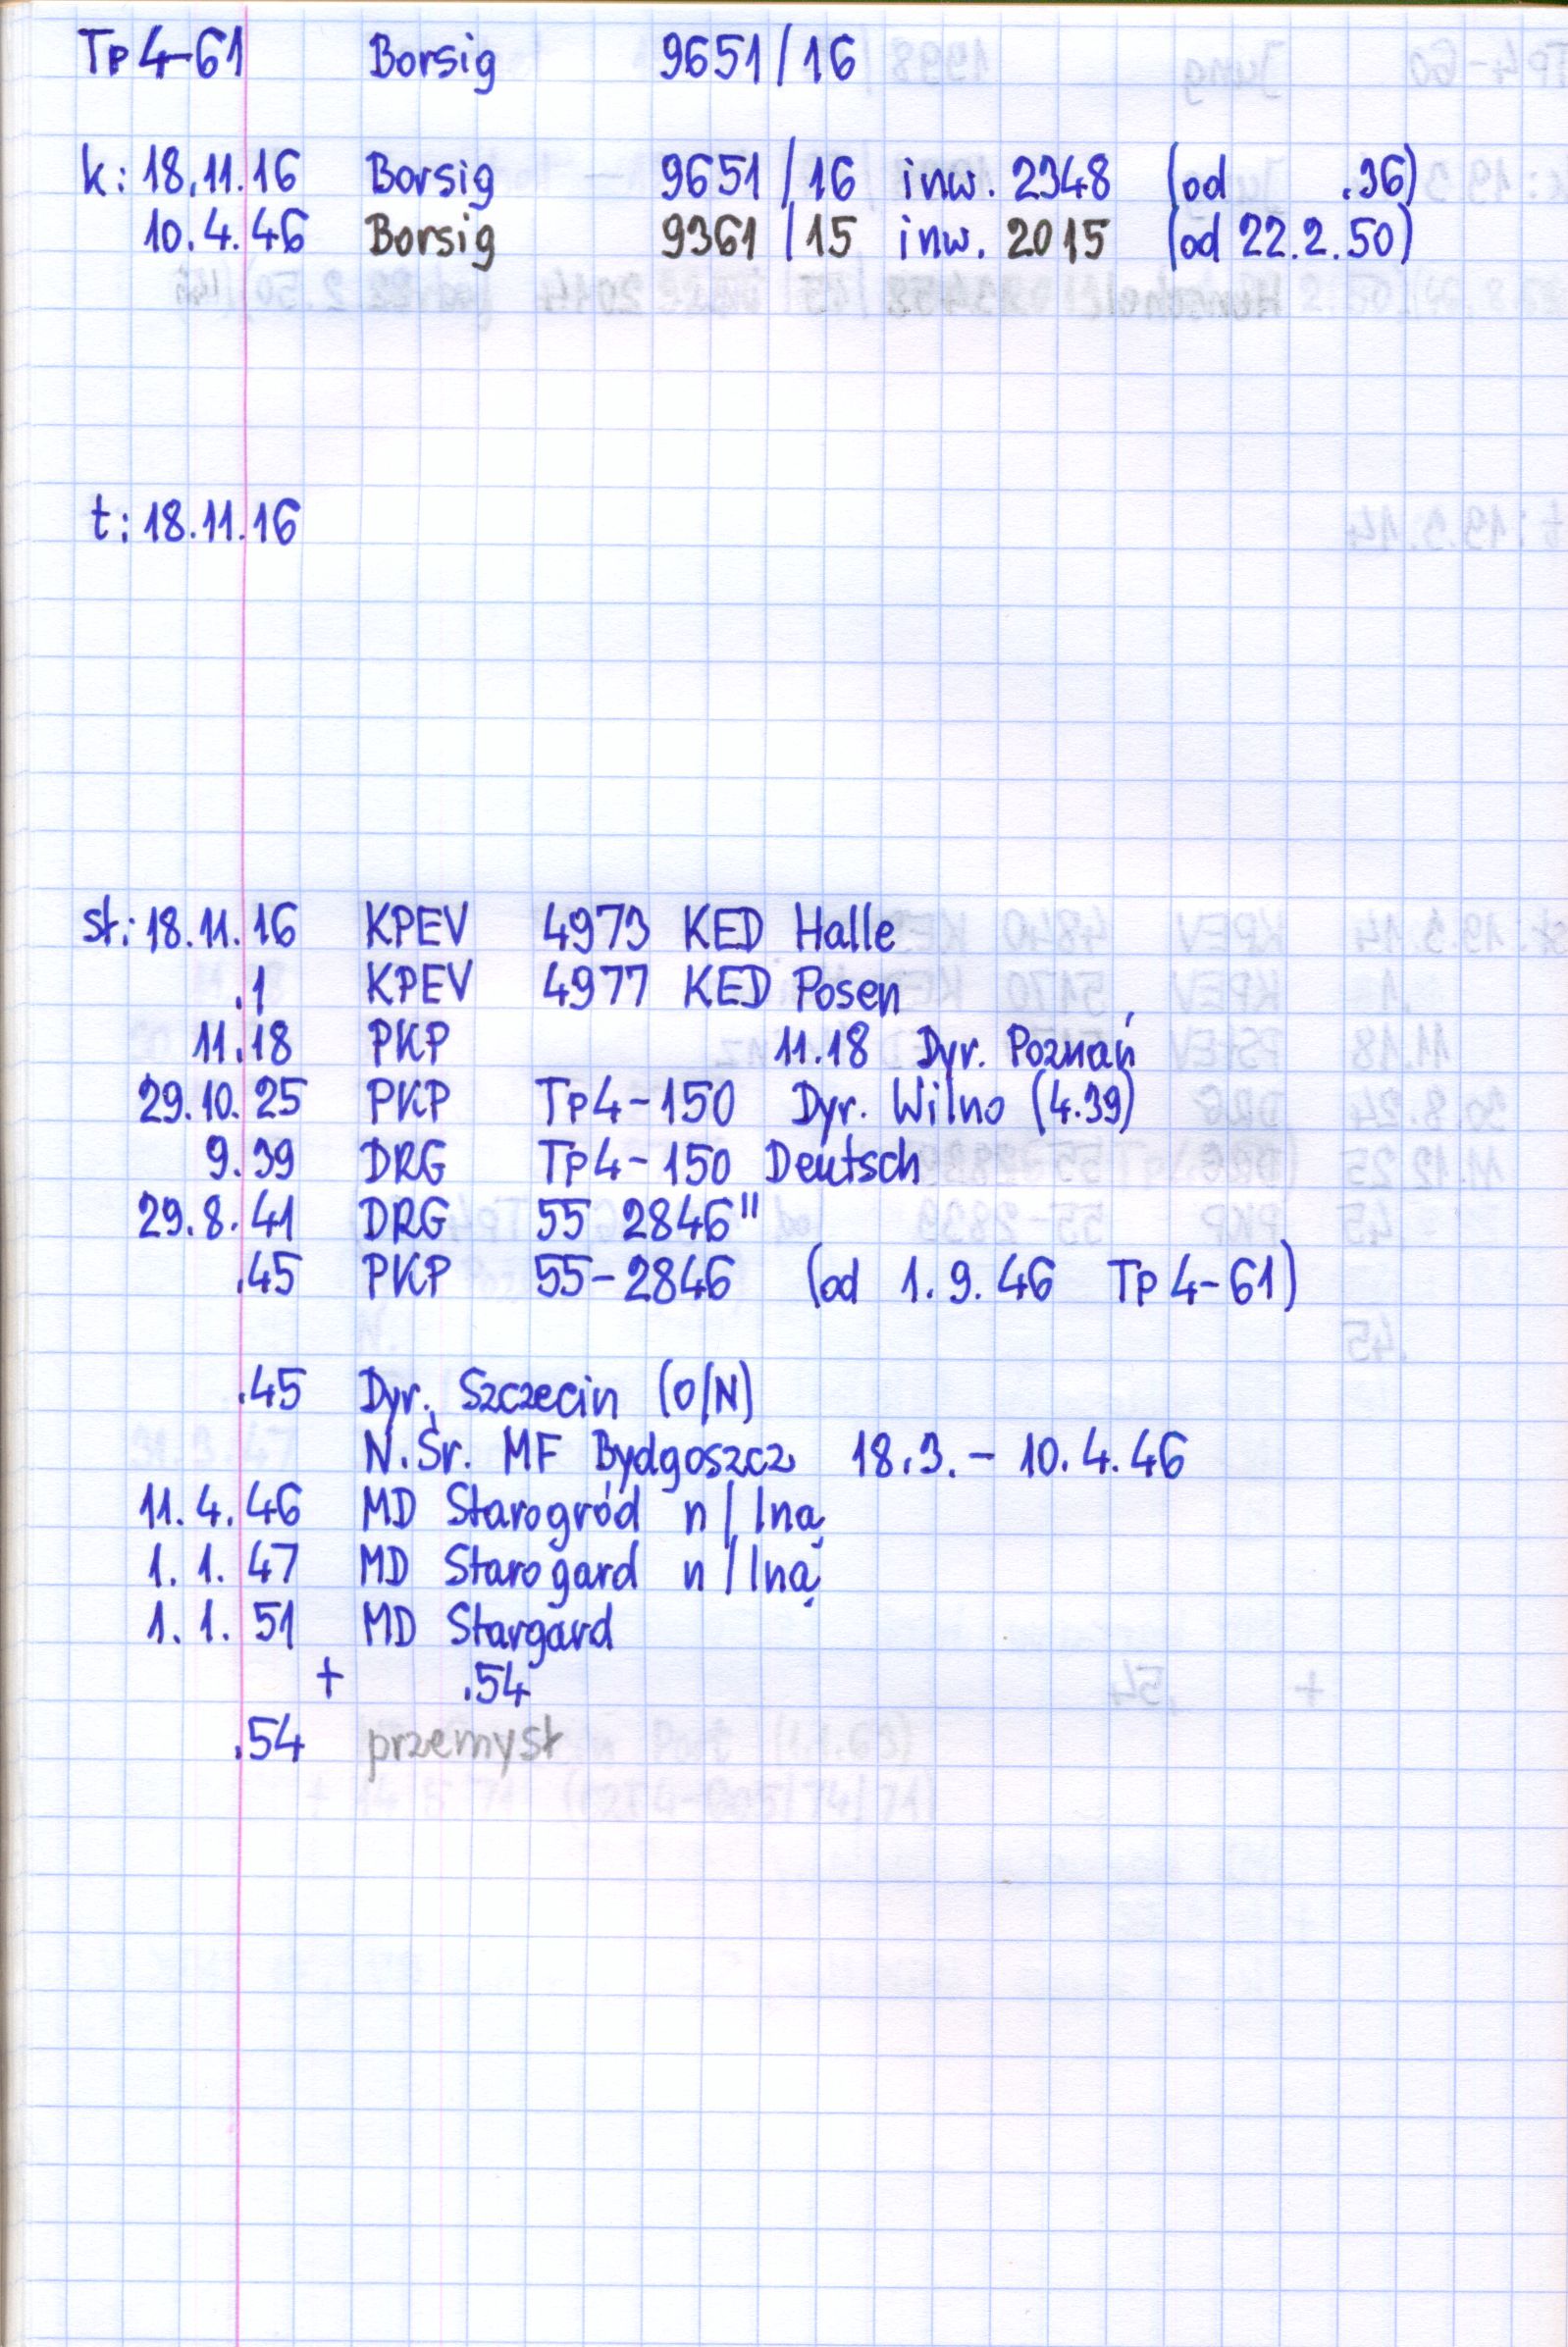 Tp4-61 Borsig 9651/16
k: 18.11.16 Borsig 9651/16 inw. 2348 (od .36)
10.4.46 Borsig 9361/15 inw. 2015 (od 22.2.50)
t: 18.11.16
st: 18.11.16 KPEV 4973 KED Halle
.1 KPEV 4977 KED Posen
11.18 PKP 11.18 Dyr. Poznań
29.10.25 PKP Tp4-150 Dyr. Wilno (4.39)
9.39 DRG Tp4-150 Deutsch
29.8.41 DRG 55 2846"
.45 PKP 55-2846 (od 1.9.46 Tp4-61)
.45 Dyr. Szczecin (O/N)
N.Śr. MF Bydgoszcz 18.3.- 10.4.46
11.4.46 MD Starogród n/Iną
1.1.47 MD Starogard n/Iną
1.1.51 MD Stargard
+ .54
.54 przemysł